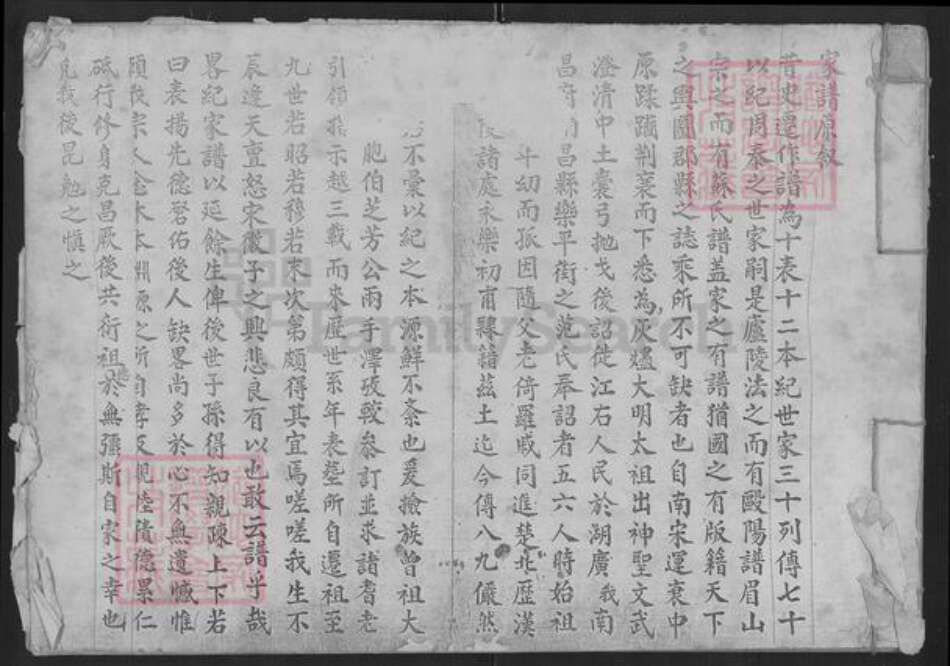 家譜原敘
昔史遷作譜為十表十二本紀世家三十列傳七十
以紀周秦之世家嗣是廬陵法之而有毆陽譜眉山
宗之而有蘇氏譜盖家之有譜猶國之有版籍天下
之輿圖郡縣之誌乘所不可缺者也自南宋運衰中
原蹂躪荆襄而下悉為灰燼大明太祖出神聖文武
澄清中土櫜弓抛戈後詔徙江右人民於湖廣我南
昌府南昌縣樂平街之范氏奉詔者五六人時始祖
斗幼而孤因隨父老倚羅戚同進楚北歷漢
諸處永樂初甫隸籍茲土迄今傳八九儼然
不彙以紀之本源鮮不紊也爰撿族曾祖大
胞伯芝芳公兩手澤攷戰叅訂並求諸耆老
引領指示越三載而來歷世系年表塋所自遷祖至
九世若昭若穆若末次第頗得其宜焉嗟嗟我生不
辰逢天亶怒宋微子之興悲良有以也敢云譜乎哉
畧紀家譜以延餘生俾後世子孫得知親疎上下若
曰表揚先德啓佑後人缺畧尚多於心不無遺憾惟
願我宗人念木本淵源之所自孝友親睦積德累仁
砥行修身克昌厥後共衍祖於無彊斯自家之幸也
凡我後昆勉之慎之
FamilySearch